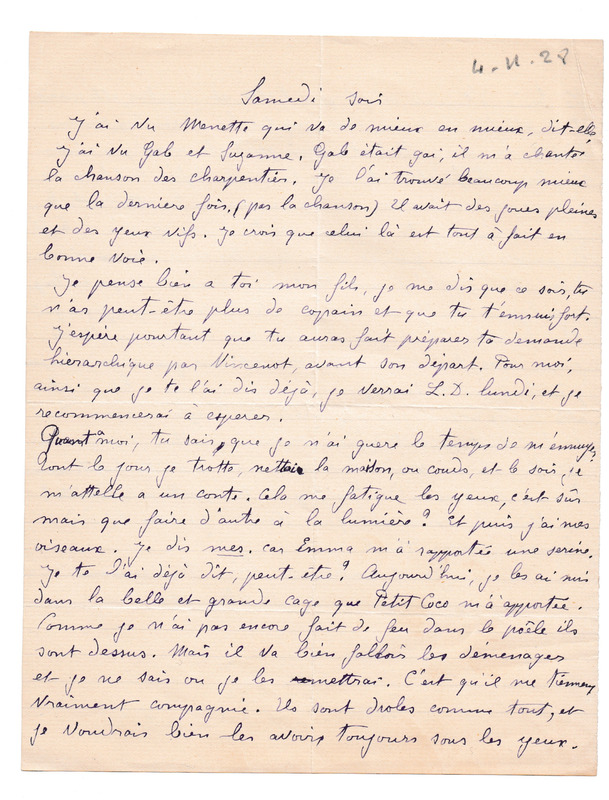 4-11-28
Samedi soir
J'ai vu Menette qui va de mieux en mieux, dit-elle
J'ai vu Gab et Suzanne. Gab était gai, il m'a chanté
la chanson des charpentiers. Je l'ai trouvé beaucoup mieux
que la derniere fois, (pas la chanson) Il avait des joues pleines
et des yeux vifs. Je crois que celui là est tout à fait en
bonne voie.
Je pense bien a toi mon fils, je me dis que ce soir, tu
n'as peut-être plus de copain et que tu t'ennuis fort.
J'espère pourtant que tu auras fait préparer ta demande
hierarchique par Vincenot, avant son départ. Pour moi,
ainsi que je te l'ai dis déjà, je verrai L.D. lundi, et je
recommencerai à esperer.
Quant à moi, tu sais, que je n'ai guere le temps de m'ennuyer
tout le jour je trotte, nettoie la maison, ou couds, et le soir, je
m'attelle a un conte. Cela me fatigue les yeux, c'est sûr
mais que faire d'autre à la lumière? Et puis j'ai mes
oiseaux. Je dis mes. car Emma m'a rapportée une serine.
Je te l'ai déjà dit, peut-être? Aujourd'hui, je les ai mis
dans la belle et grande cage que Petit Coco m'a apportée.
Comme je n'ai pas encore fait de feu dans le poêle ils
sont dessus. Mais il va bien falloir les demenager
et je ne sais ou je les mettrai. C'est qu'il me tiennent
vraiment compagnie. Ils sont droles comme tout, et
je voudrais bien les avoir toujours sous les yeux.